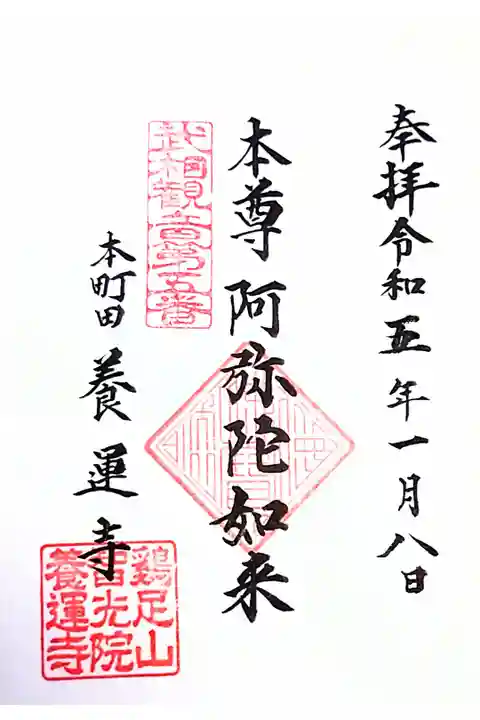 奉拝令和五年一月八日
本尊阿弥陀如来
武相観音第五番
本町田養運寺
鶏足山
智光院
養運寺